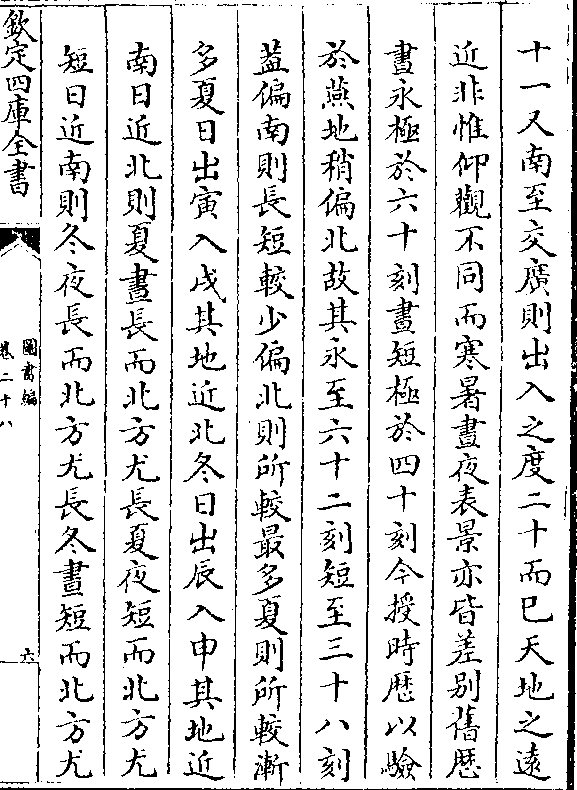 十一又南至交廣則出入之度二十而已天地之遠
近非惟仰觀不同而寒暑晝夜表景亦皆差别舊厯
晝永極於六十刻晝短極於四十刻今授時厯以驗
於燕地稍偏北故其永至六十二刻短至三十八刻
葢偏南則長短較少偏北則所較最多夏則所較漸
多夏日出寅入戌其地近北冬日出辰入申其地近
南日近北則夏晝長而北方尤長夏夜短而北方尤
短日近南則冬夜長而北方尤長冬晝短而北方尤
欽定四庫全書
圖書編
卷二十八
六